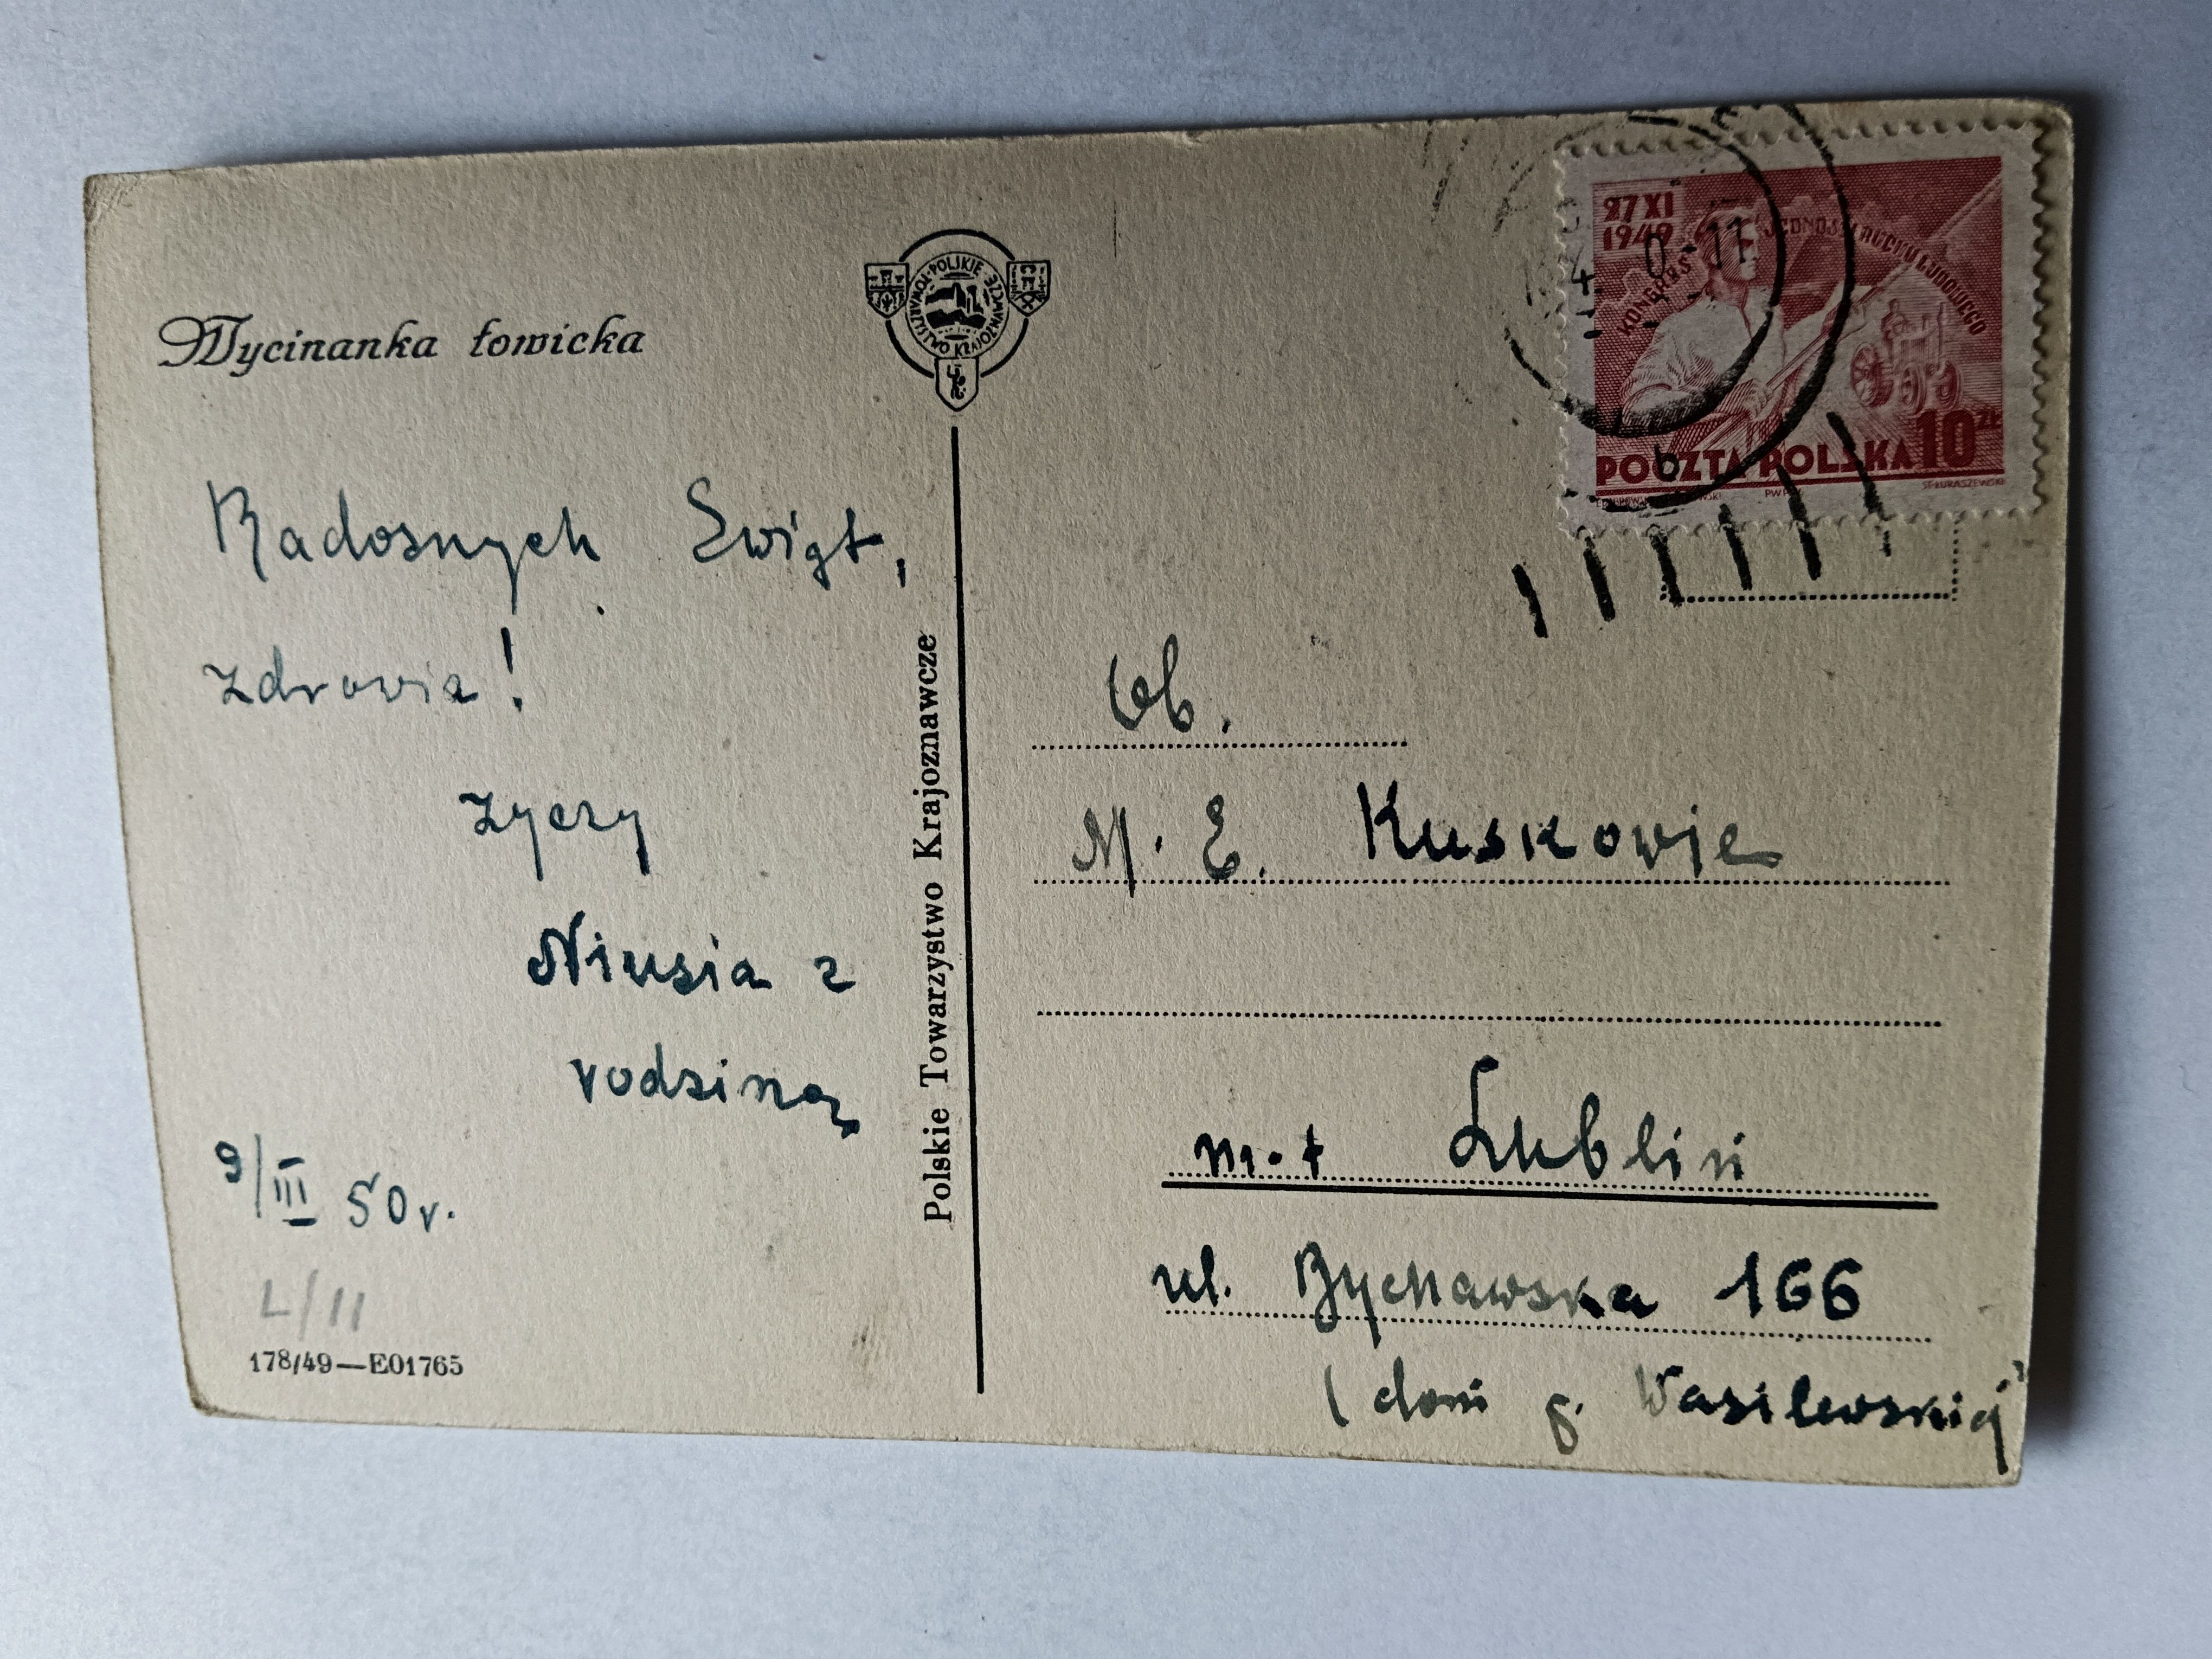 Wycinanka łowicka
POLSKIE TOWARZYSTWO KRAJOZNAWCZE
Radosnych Swiąt,
zdrowia!
zyczy
Niusia z
rodziną
9/III 50 r.
L/11
178/49—E01765
Polskie Towarzystwo Krajoznawcze
27 XI
1949
KONGRES JEDNOŚCI RUCHU LUDOWEGO
POCZTA POLSKA 10 ZŁ
ST. ŁUKASZEWSKI
b
Ob.
M. E. Kuskowie
m. Lublin
ul. Bychawska 166
(dom p. Wasilewskiej